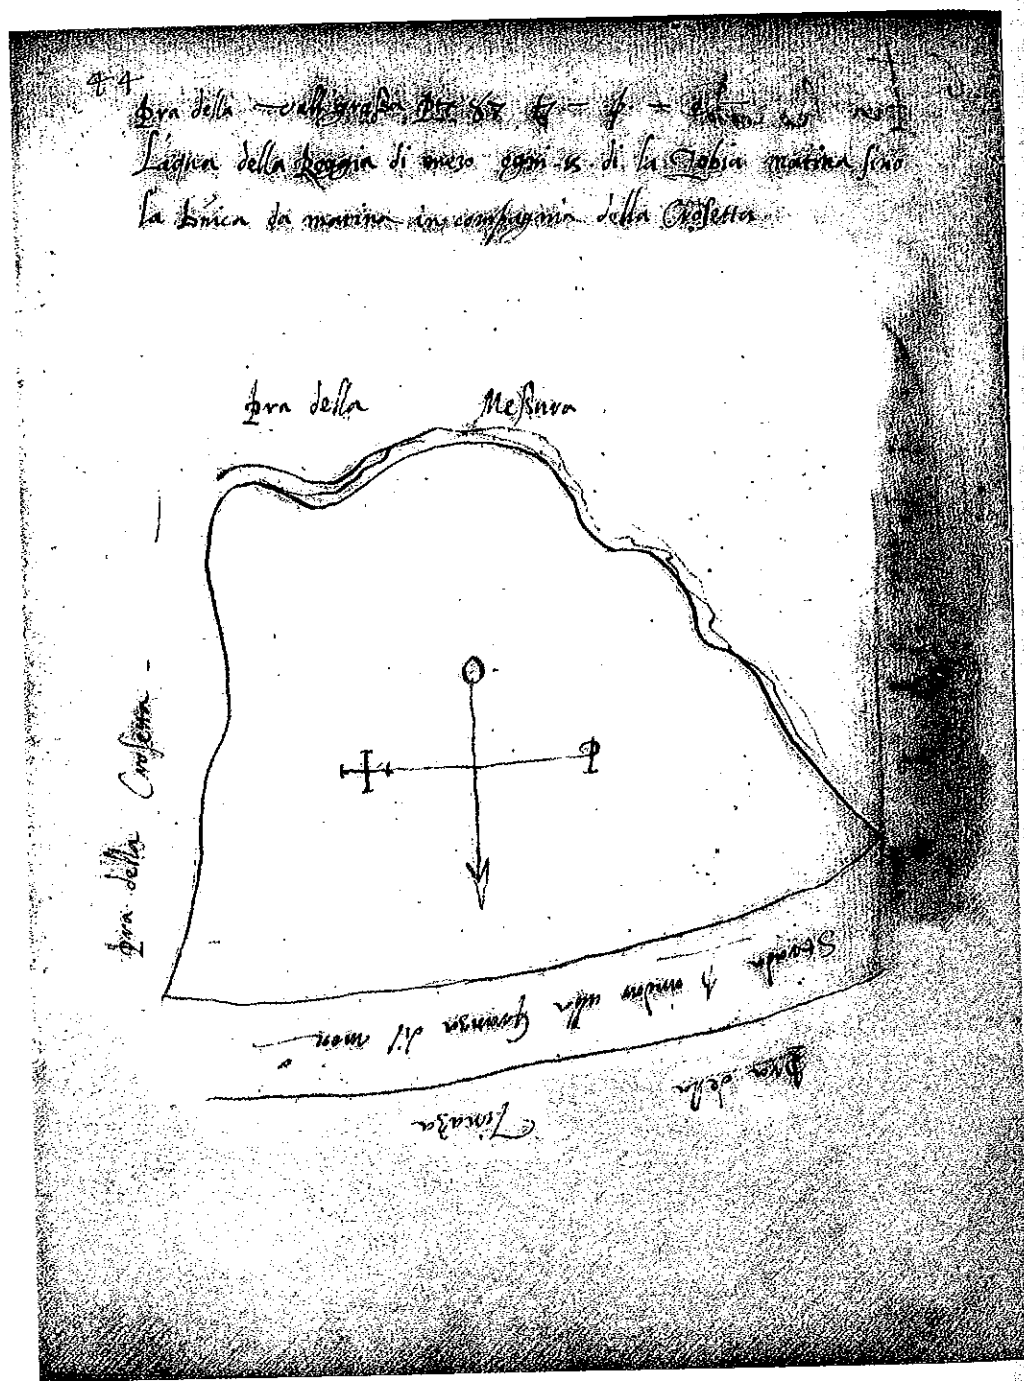 44
Pra della Valligrassa Pt 87
L'aqua della Roggia di mezo ogni 15 di la Zobia matina sino
la Dnica da matina in compagnia della Crosetta
Pra della Messura
Pra della Crosetta
O
P
Strada p andar alla Granza dil mon
Pra della
Tinaza